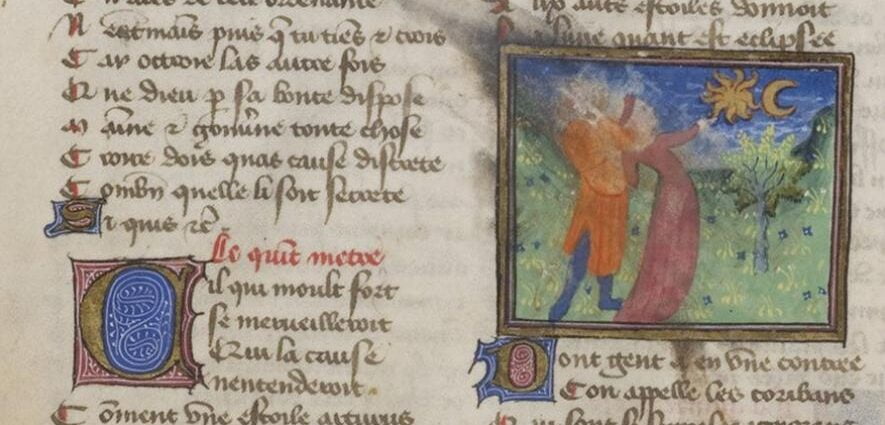 N eatmais puis q̄ tu tiēs ⁊ crois
C ar octroie las autre fois
Q ue dieu p sa bonte dispose
M aine ⁊ gouu̅ne toute chose
C roire dois quas cause discrete
C ombn̄ quelle li soit secrete
Si quis ⁊c̄
Le quīt metre
Cil qui moult fort
se merueilleroit
Qui la cause
nentenderoit
C om̄ent vne estoile arturus
estoiles donnoit
la lune quant est eclipsee
Dont gent en vne contree
C on appelle les coribans